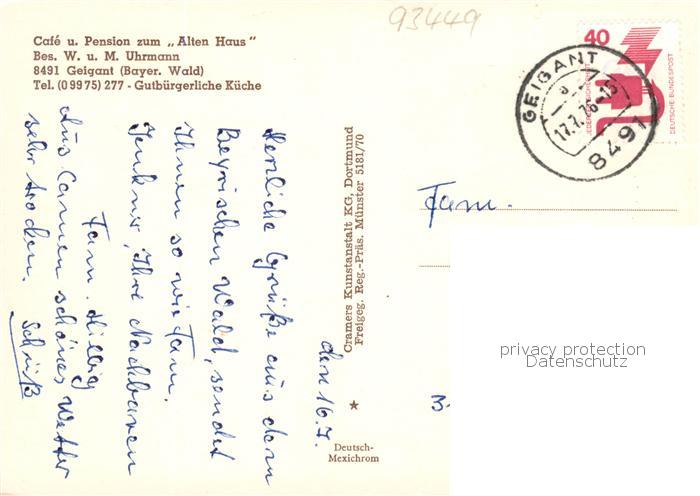 93449
Café u. Pension zum „Alten Haus"
Bes. W. u. M. Uhrmann
8491 Geigant (Bayer. Wald)
Tel. (0 99 75) 277 - Gutbürgerliche Küche
den 16.7.
Herzliche Grüße aus dem
Beyrischen Wald, sendet
Ihnen so wie Fam.
Ihre Nachbaren
Fam. Hillbig
schönes Wetter
sehr trocken. Schüß
Cramers Kunstanstalt KG, Dortmund
Freigeg. Reg.-Präs. Münster 5181/70
Deutsch-
Mexichrom
40
DEUTSCHE BUNDESPOST
GEIGANT
17.7.76-15
8491
Fam.
privacy protection
Datenschutz